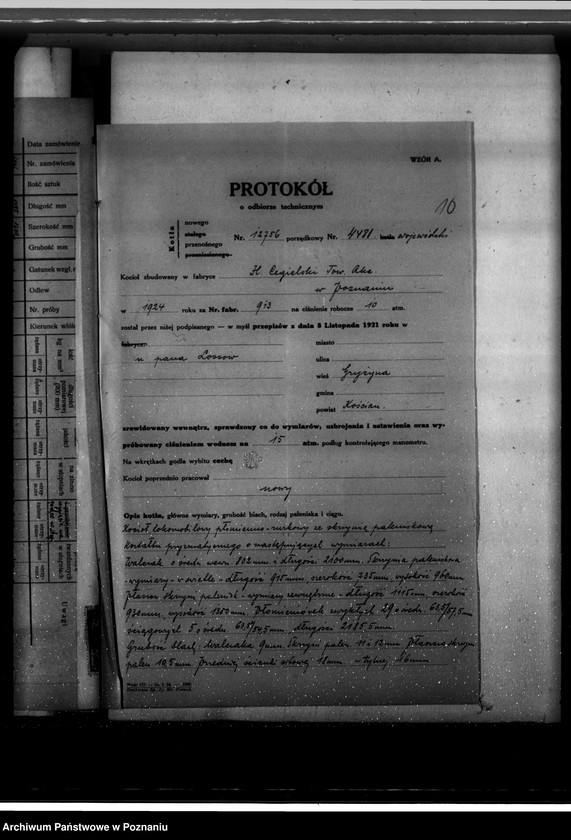 Data zamówienie
Nr. zamówienia
Ilość sztuk
Długość mm
Szerokość mm
Grubość mm
Gatunek wzgl.
Odlew
Nr. próby
Kierunek
Uwagi
WZÓR A.
PROTOKÓŁ
o odbiorze technicznym
10
Kotła
nowego
stałego
przenośnego
przenośnego
Nr. 12756 porządkowy Nr. 4481 wojewódzki
Kocioł zbudowany w fabryce H. Cegielski Tow. Akc.
w Poznaniu
w 1924 roku za Nr. fabr. 913 na ciśnienie robocze 10 atm.
został przez niżej podpisanego — w myśl przepisów z dnia 8 Listopada 1921 roku w
fabryce:
u pana Lossow
miasto
ulica
wieś Gryżyna
gmina
powiat Kościan.
zrewidowany wewnątrz, sprawdzony co do wymiarów, uzbrojenia i ustawienia oraz wy-
próbowany ciśnieniem wodnem na 15 atm. podług kontrolującego manometru.
Na wkrętkach godła wybito cechę
Kocioł poprzednio pracował
nowy
Opis kotła, główne wymiary, grubość blach, rodzaj paleniska i ciągu.
Kocioł lokomobilowy płomienno-rurkowy ze skrzynią paleniskową
kształtu pryzmatycznego o następujących wymiarach:
Walczak o średn. wewn. 802 mm i długości 2100 mm. Skrzynia paleniskowa
-wymiary - w świetle - długość 915 mm, szerokość 735 mm, wysokość 960 mm
Płaszcz skrzyni palenisk - wymiary zewnętrzne - długość 1115 mm, szerokość
930 mm, wysokość 1350 mm. Płomieniówek zwykłych 29 o średn. 63,5/57,5 mm
ściągowych 5 o średn. 63,5/54,5 mm, długości 2185,5 mm
Grubość blach: Walczaka 9 mm Skrzyni palen. 11 i 12 mm Płaszcza skrzyni
palen. 10,5 mm Przedniej ścianki sitowej 18 mm - tylnej 16 mm